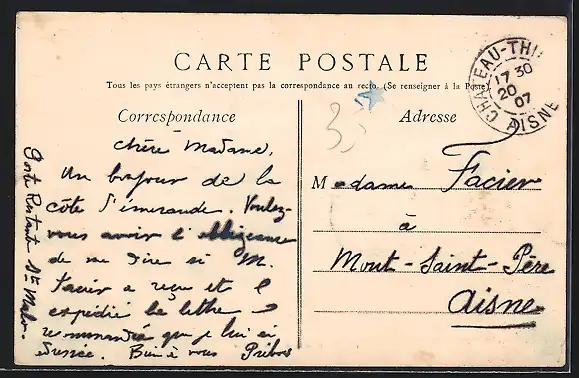 CARTE POSTALE
Tous les pays étrangers n'acceptent pas la correspondance au recto. (Se renseigner à la Poste)
Correspondance
Adresse
CHATEAU-THI
17 30
20
07
AISNE
35
chère Madame,
Un bonjour de la
côte d'émeraude. Voulez-
vous avoir l'obligeance
de me dire si M.
Facier a reçu et
expédié la lettre
recommandée que je lui ai
adressée. Bien à vous
Poste Restante St Malo.
Madame Facier
à
Mont-Saint-Père
Aisne